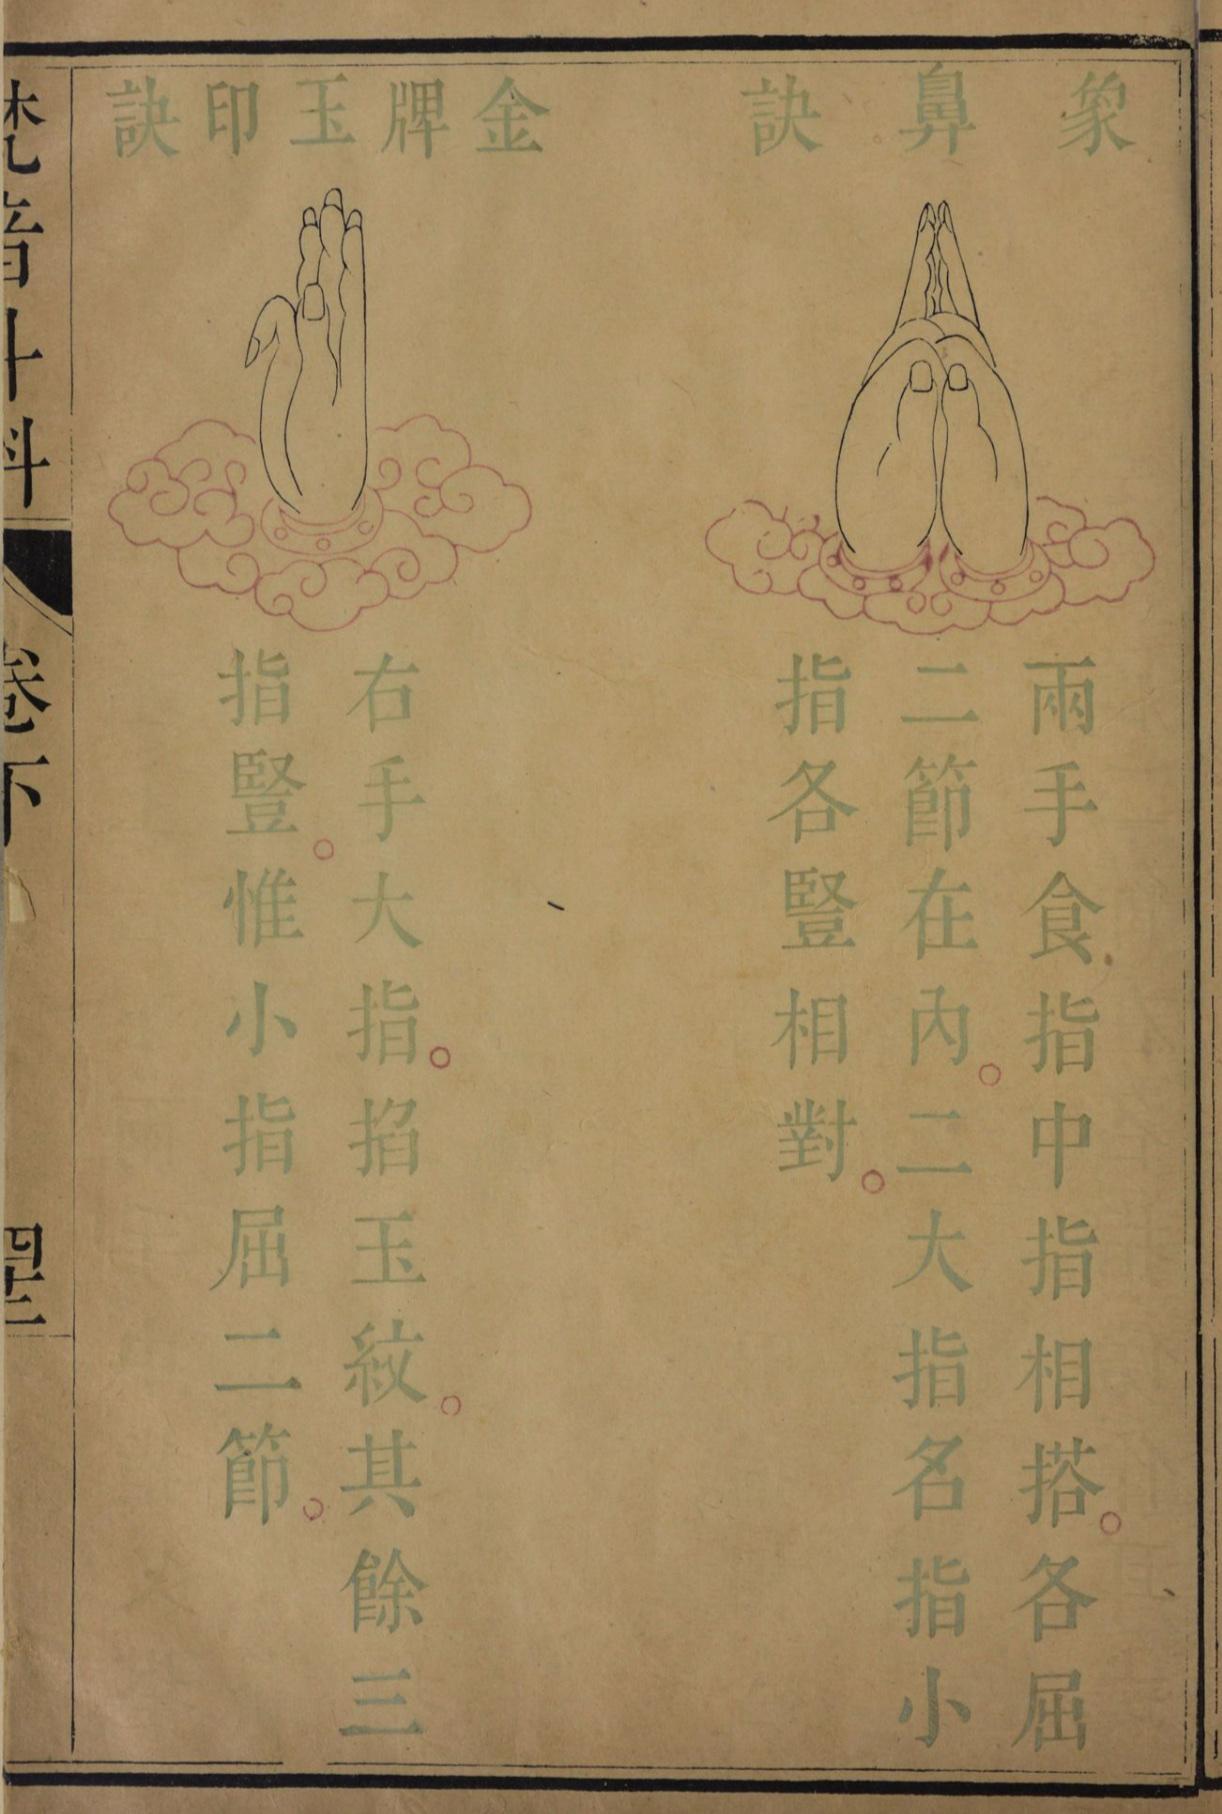 象鼻訣
兩手食指中指相搭。各屈
二節在內。二大指名指小
指各豎相對。
金牌玉印訣
右手大指。掐玉紋。其餘三
指豎。惟小指屈二節。
梵音斗科
卷下